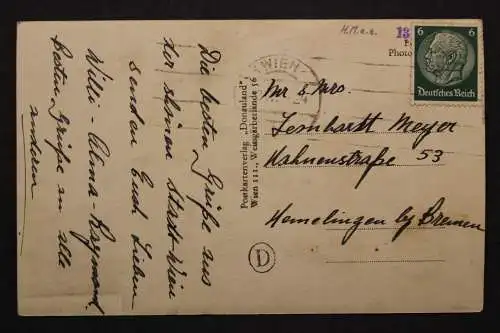 Die besten Grüße aus
der schönen Stadt Wien
senden Euch Lieben
Willi - Alma - Raymond.
besten Grüße an alle
anderen
Postkartenverlag „Donauland"
Wien III., Weissgärberlände 36
D
WIEN
H.M.a.a.
13
Photo
6 6
Deutsches Reich
Mr & Mrs.
Lernhardt Meyer
Hahnenstraße 53
Hemelingen by Bremen